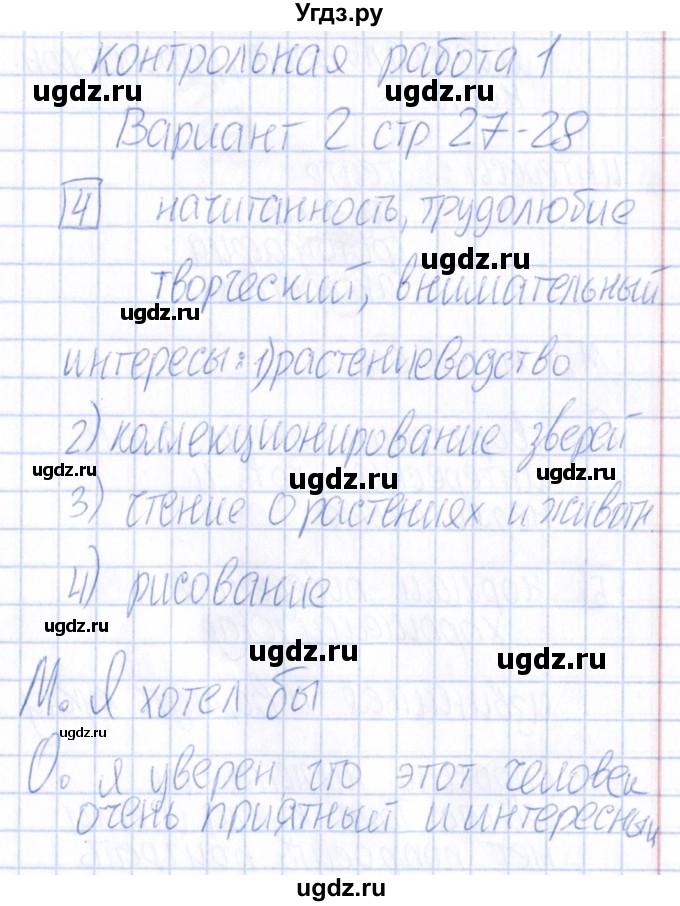 Угдз.ру
контрольная работа 1
ugdz.ru ugdz.ru
Вариант 2 стр 27-28
4 начитанность, трудолюбие
ugdz.ru
творческий, внимательный
ugdz.ru
интересы: 1) растениеводство
2) коллекционирование зверей
ugdz.ru ugdz.ru ugdz.ru
3) чтение о растениях и животн.
4) рисование
ugdz.ru
ugdz.ru ugdz.ru
М. Я хотел бы
ugdz.ru
О. я уверен, что этот человек
очень приятный и интересный
ugdz.ru